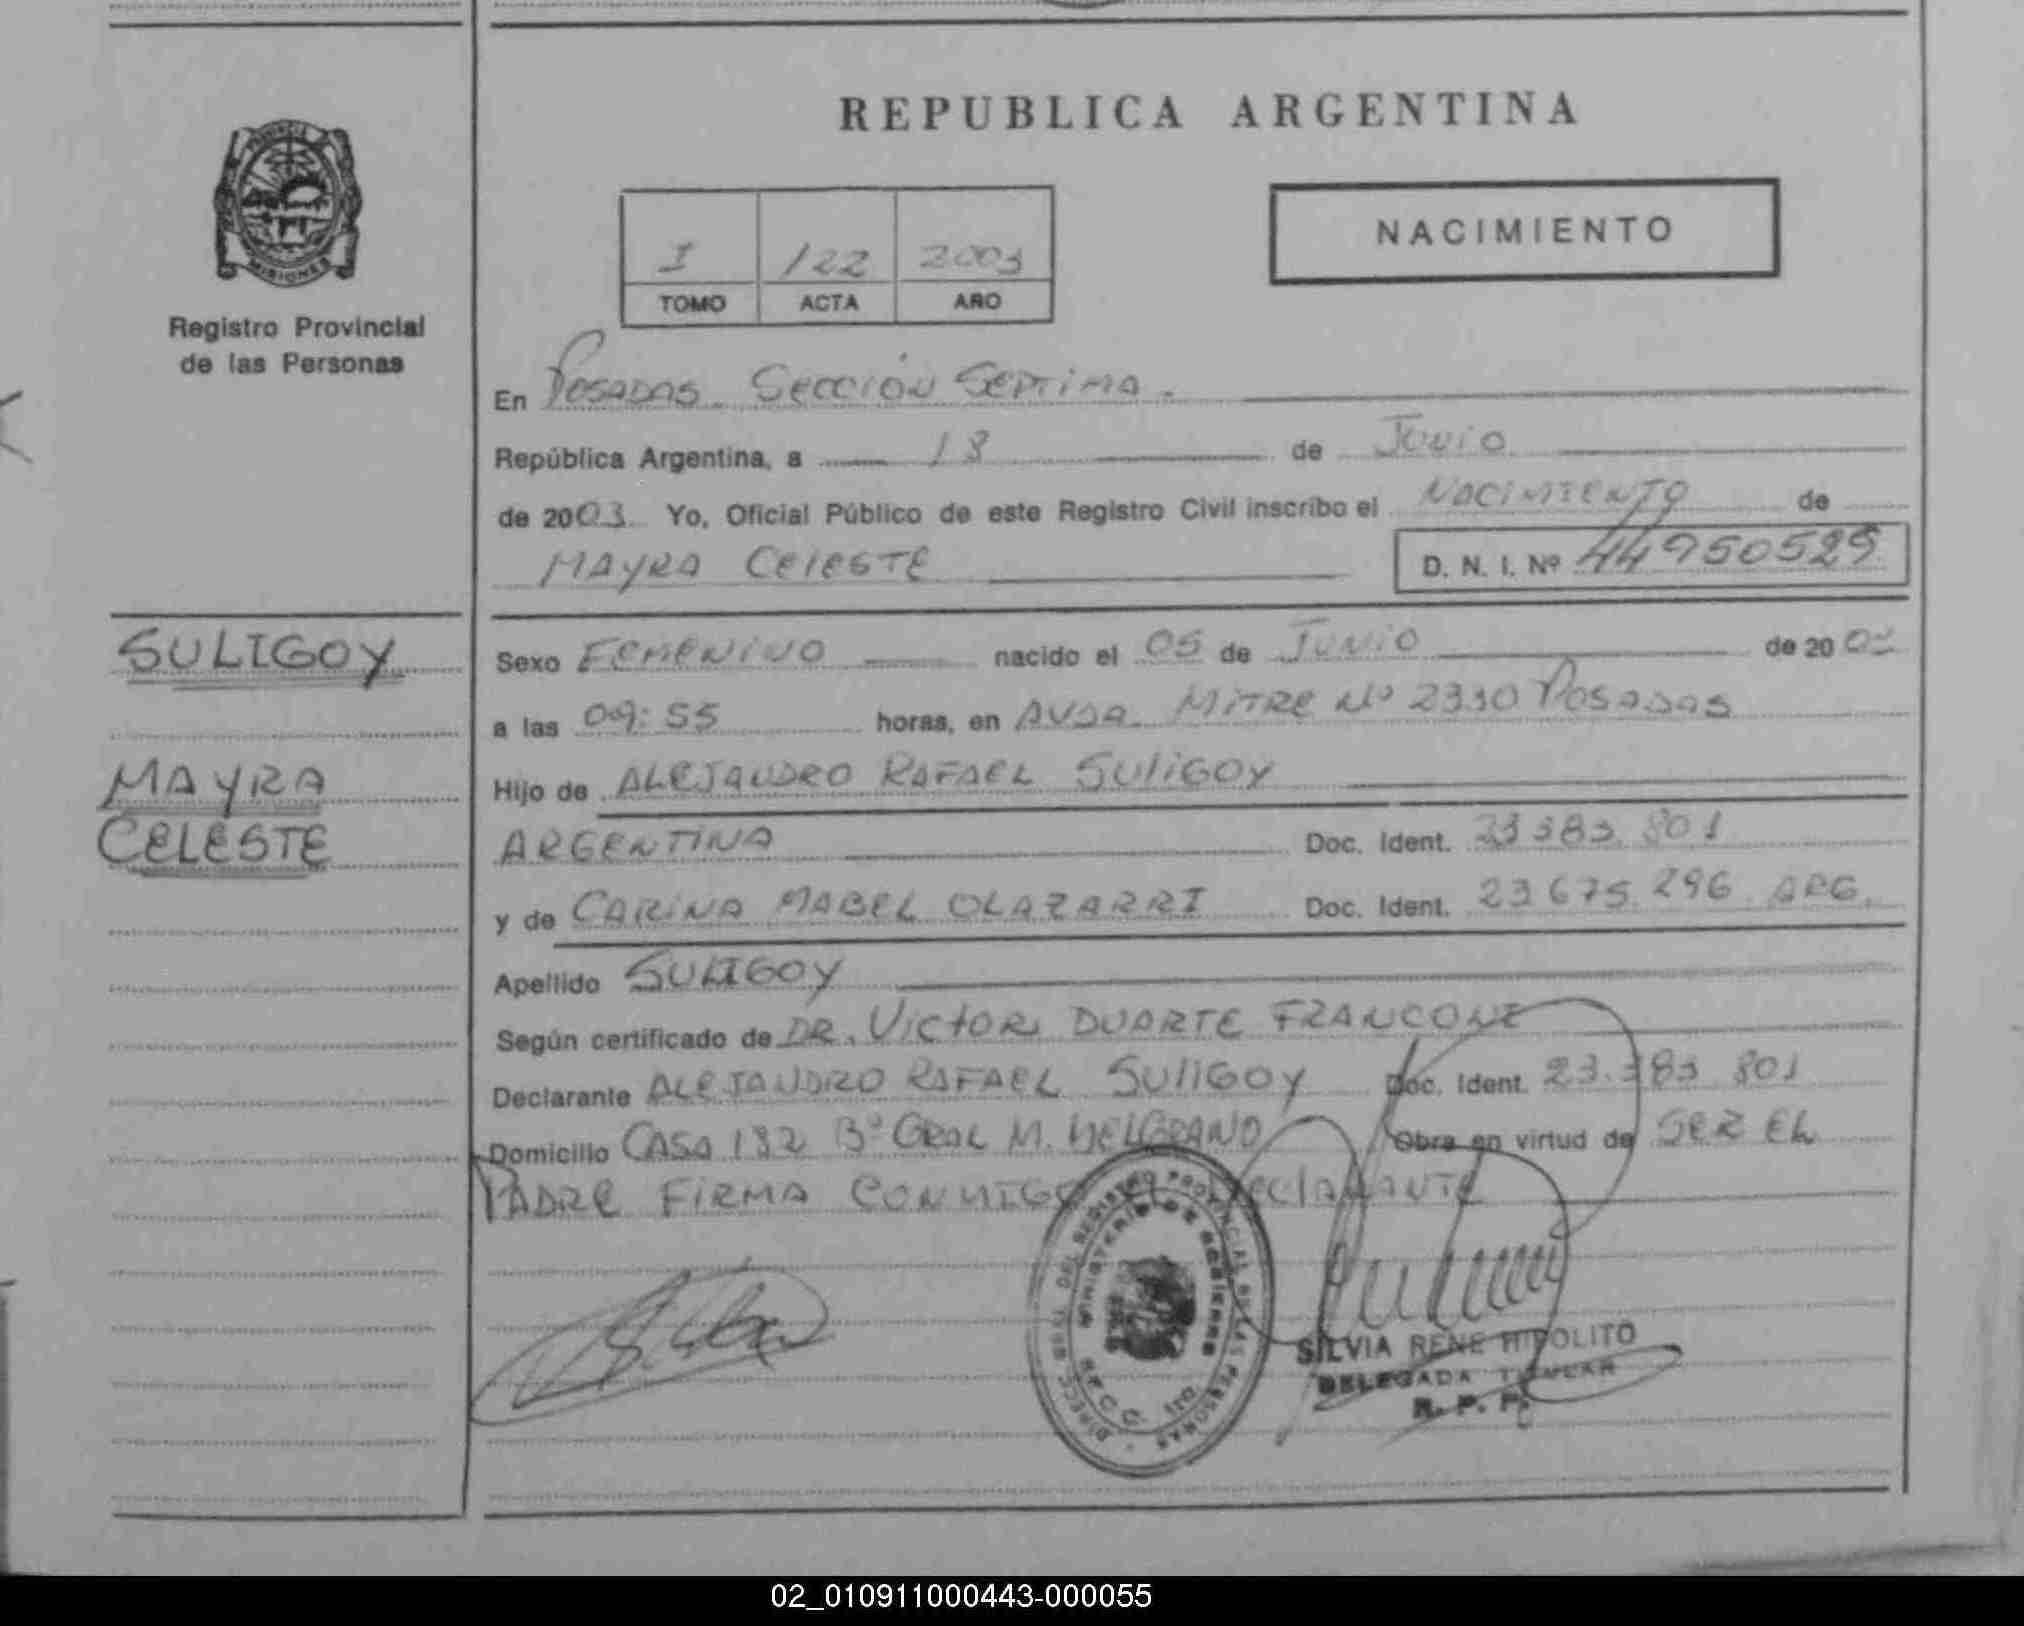 REPUBLICA ARGENTINA
PROVINCIA
MISIONES
Registro Provincial
de las Personas
I 122 2003
TOMO ACTA AÑO
NACIMIENTO
En POSADAS. SECCIÓN SEPTIMA.
República Argentina, a 13 de JUNIO
de 2003. Yo, Oficial Público de este Registro Civil inscribo el NACIMIENTO de
MAYRA CELESTE D. N. I. Nº 44950529
SULIGOY
MAYRA
CELESTE
Sexo FEMENINO nacido el 05 de JUNIO de 20
a las 09:55 horas, en AVDA. MITRE Nº 2330 POSADAS
Hijo de ALEJANDRO RAFAEL SULIGOY
ARGENTINA Doc. Ident. 23383.801
y de CARINA MABEL OLAZARRI Doc. Ident. 23675.296 ARG.
Apellido SULIGOY
Según certificado de DR. VICTOR DUARTE FRANCONI
Declarante ALEJANDRO RAFAEL SULIGOY Doc. Ident. 23.383.801
Domicilio CASA 132 Bº GRAL M. BELGRANO Obra en virtud de SER EL
PADRE FIRMA CONMIGO DECLARANTE
DIRECC. GRAL. DEL REGISTRO PROVINCIAL DE LAS PERSONAS
MINISTERIO DE GOBIERNO
SILVIA RENE HIPOLITO
DELEGADA TITULAR
R. P. P.
02_010911000443-000055